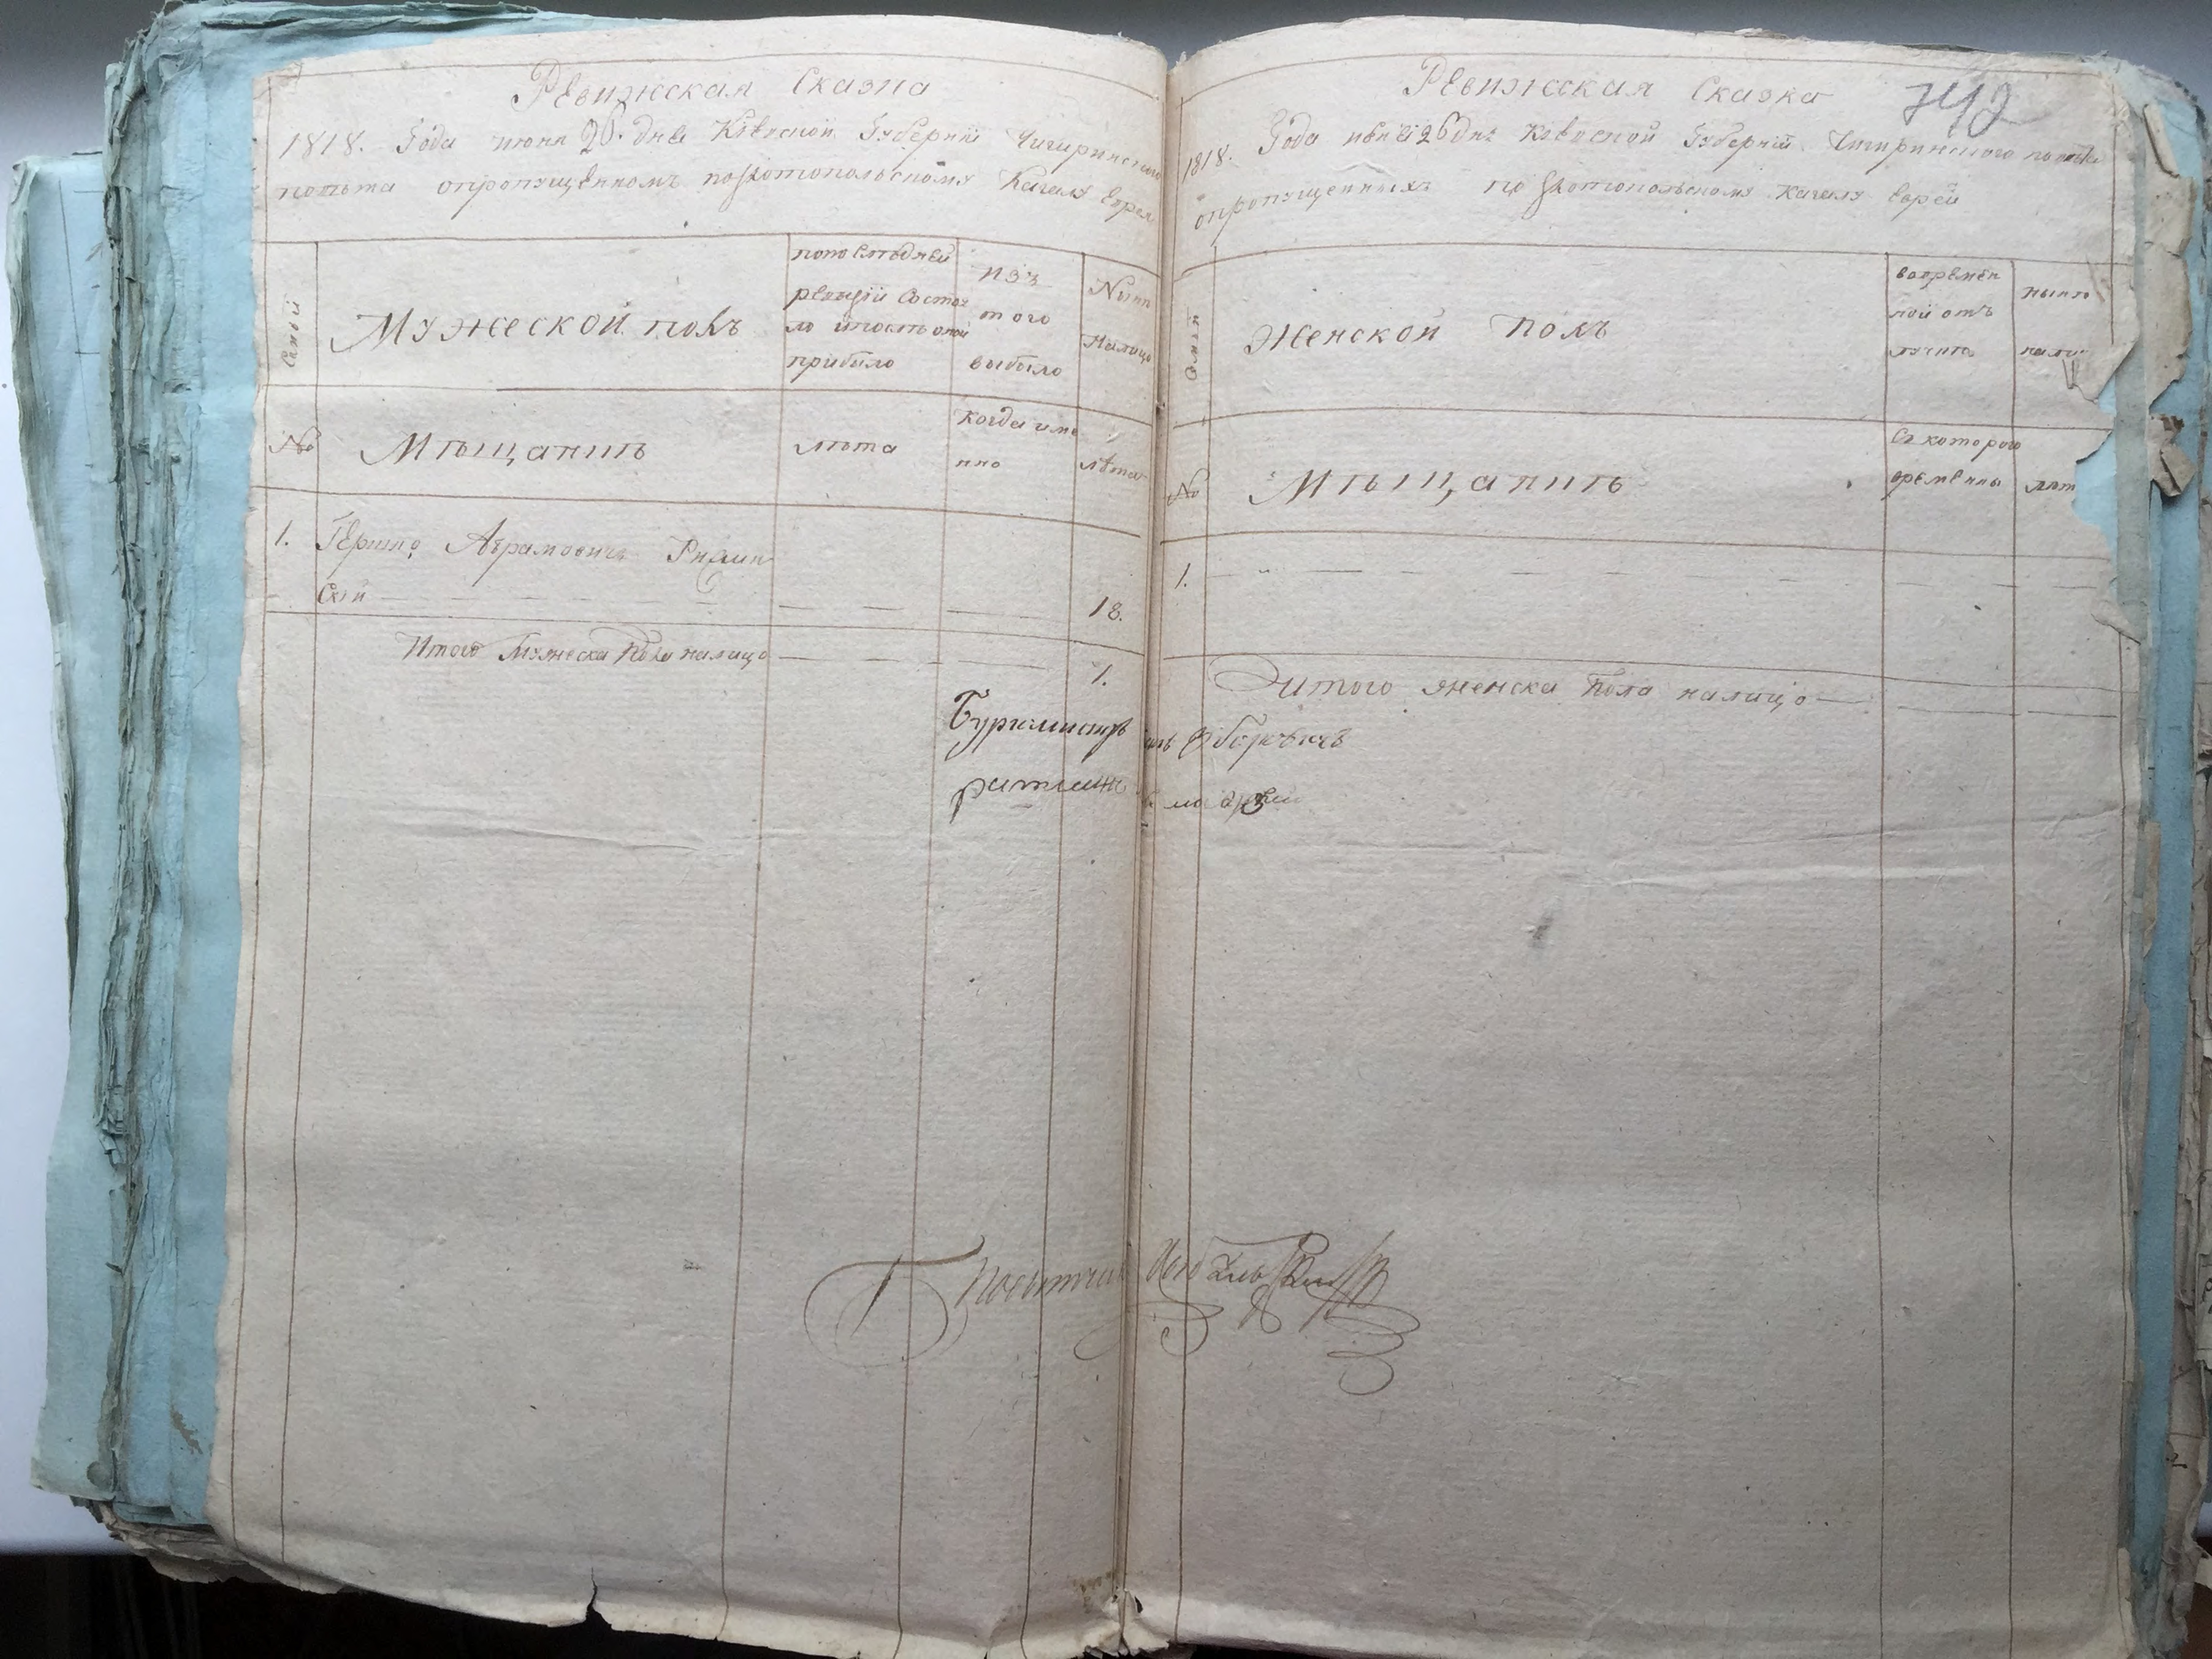 Ревижская Сказка
1818. Года июня 26. дня Кіевской Губерніи Чигиринского
повѣта опропущенномъ по Златопольскому Кагалу Еврея
Семьи
Мужеской полъ
попослѣдней
ревизіи состоя
ло ипосль оной
прибыло
изъ
того
выбыло
Нынѣ
Налицо
№
Мѣщанинъ
лѣта
Когда име
нно
лѣта
1. Гершко Абрамовичъ
скій 18.
Итого Мужеска Пола налицо 1.
Ревижская Сказка
742
1818. Года июня 26 дня Кіевской Губерніи Чигиринского повѣта
опропущенныхъ по Златопольскому Кагалу Еврей
Семьи
Женской полъ
вовремен
ной отъ
лучкѣ
нынѣ
нали
№
Мѣщанинъ
Съ которого
времени
лѣт
1.
Итого женска Пола налицо
Бургмистръ
ратманъ